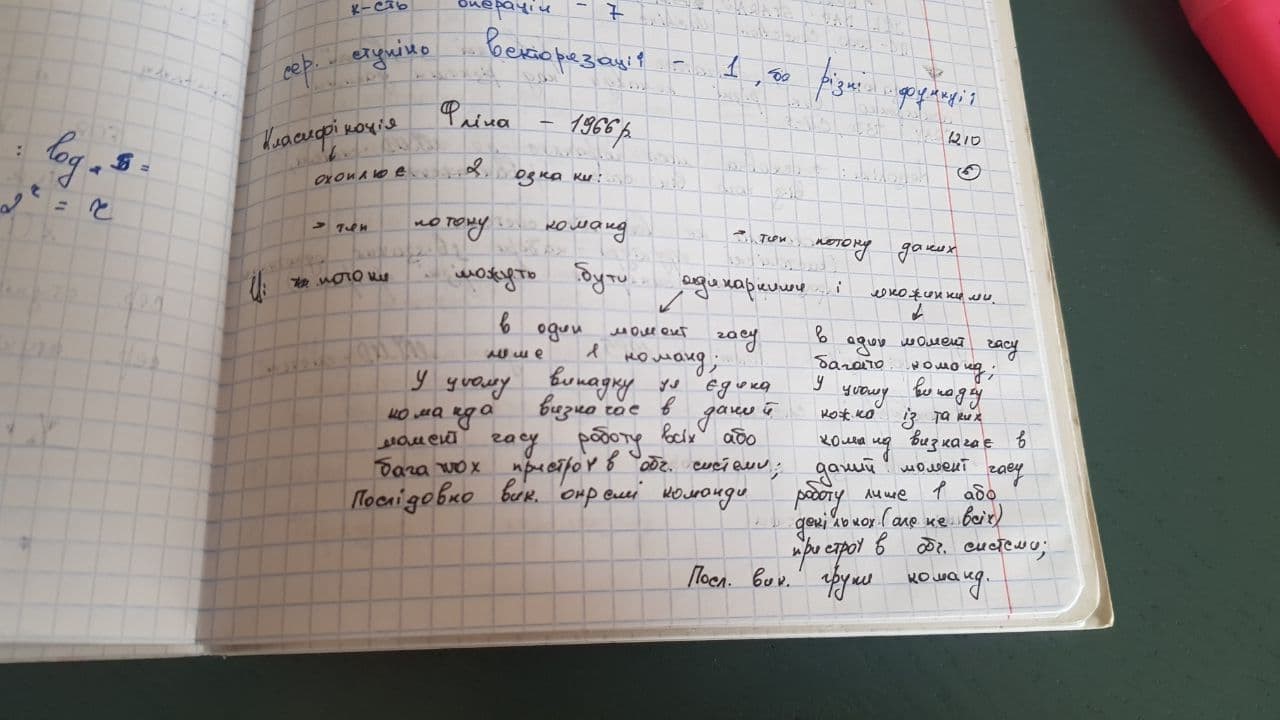 к-сть операцій - 7
сер. ступінь векторизації - 1, бо різні функції
Класифікація Фліна - 1966р.
12.10
охоплює 2 ознаки:
→ тип потоку команд → тип потоку даних
Ці потоки можуть бути одинарними і множинними.
в один момент часу
лише 1 команд;
У цьому випадку ця єдина
команда визначає в даний
момент часу роботу всіх або
багатьох пристроїв обч. системи;
Послідовно вик. окремі команди
в один момент часу
багато команд;
У цьому випадку
кожна із таких
команд визначає в
даний момент часу
роботу лише 1 або
декількох (але не всіх)
пристроїв обч. системи;
Посл. вик. групи команд.
: log
= x